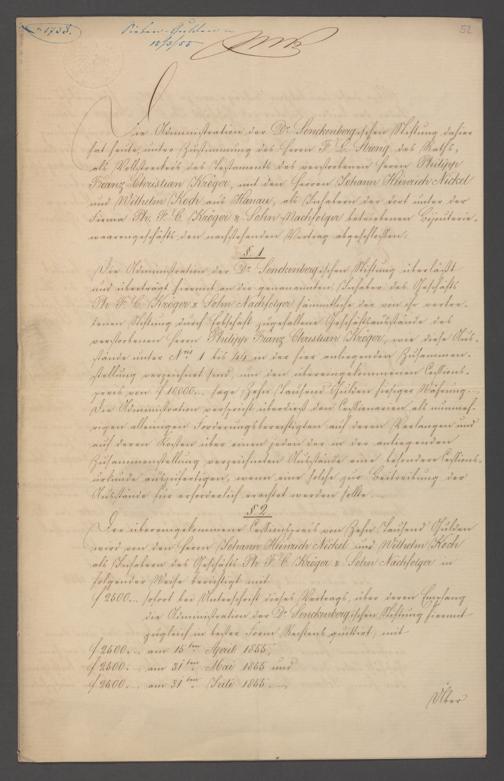 1738.
Sieben Gulden
12/3/55
52
Die Administration der Dr. Senckenbergischen Stiftung dahier
hat heute, unter Zustimmung des Herrn F. L. Streng des Raths,
als Vollstreckers des Testaments des verstorbenen Herrn Philipp
Franz Christian Kröger, mit den Herren Johann Heinrich Nickel
und Wilhelm Koch aus Hanau, als Inhabern des dort unter der
Firma Ph. F. C. Kröger & Sohn Nachfolger betriebenen Bijouterie-
waarengeschäfts den nachstehenden Vertrag abgeschlossen.
§ 1
Die Administration der Dr. Senckenbergischen Stiftung überläßt
und überträgt hiermit an die genannten Inhaber des Geschäfts
Ph. F. C. Kröger & Sohn Nachfolger sämmtliche der von ihr vertre-
tenen Stiftung durch Erbschaft zugefallene Geschäftsausstände des
verstorbenen Herrn Philipp Franz Christian Kröger, wie diese Aus-
stände unter Nro. 1 bis 44 in der hier anliegenden Zusammen-
stellung verzeichnet sind, um den übereingekommenen Cessions-
preis von f 10000 sage Zehn Tausend Gulden hiesiger Währung.
Die Administration verspricht überdieß den Cessionaren als nunmeh-
rigen alleinigen Forderungsberechtigten auf deren Verlangen und
auf deren Kosten über einen jeden der in der anliegenden
Zusammenstellung verzeichneten Ausstände eine besondere Cessions-
urkunde auszufertigen, wenn eine solche zur Beitreibung der
Ausstände für erforderlich erachtet werden sollte.
§ 2
Der übereingekommene Cessionspreis von Zehn Tausend Gulden
wird von den Herrn Johann Heinrich Nickel und Wilhelm Koch
als Inhabern des Geschäfts Ph. F. C. Kröger & Sohn Nachfolger in
folgender Weise berichtigt mit
f 2500 sofort bei Unterschrift dieses Vertrags, über deren Empfang
die Administration der Dr. Senckenbergischen Stiftung hiermit
zugleich in bester Form Rechtens quittirt, mit
f 2500 am 15ten April 1855,
f 2500 am 31ten Mai 1855 und
f 2500 am 31ten Juli 1855
Über